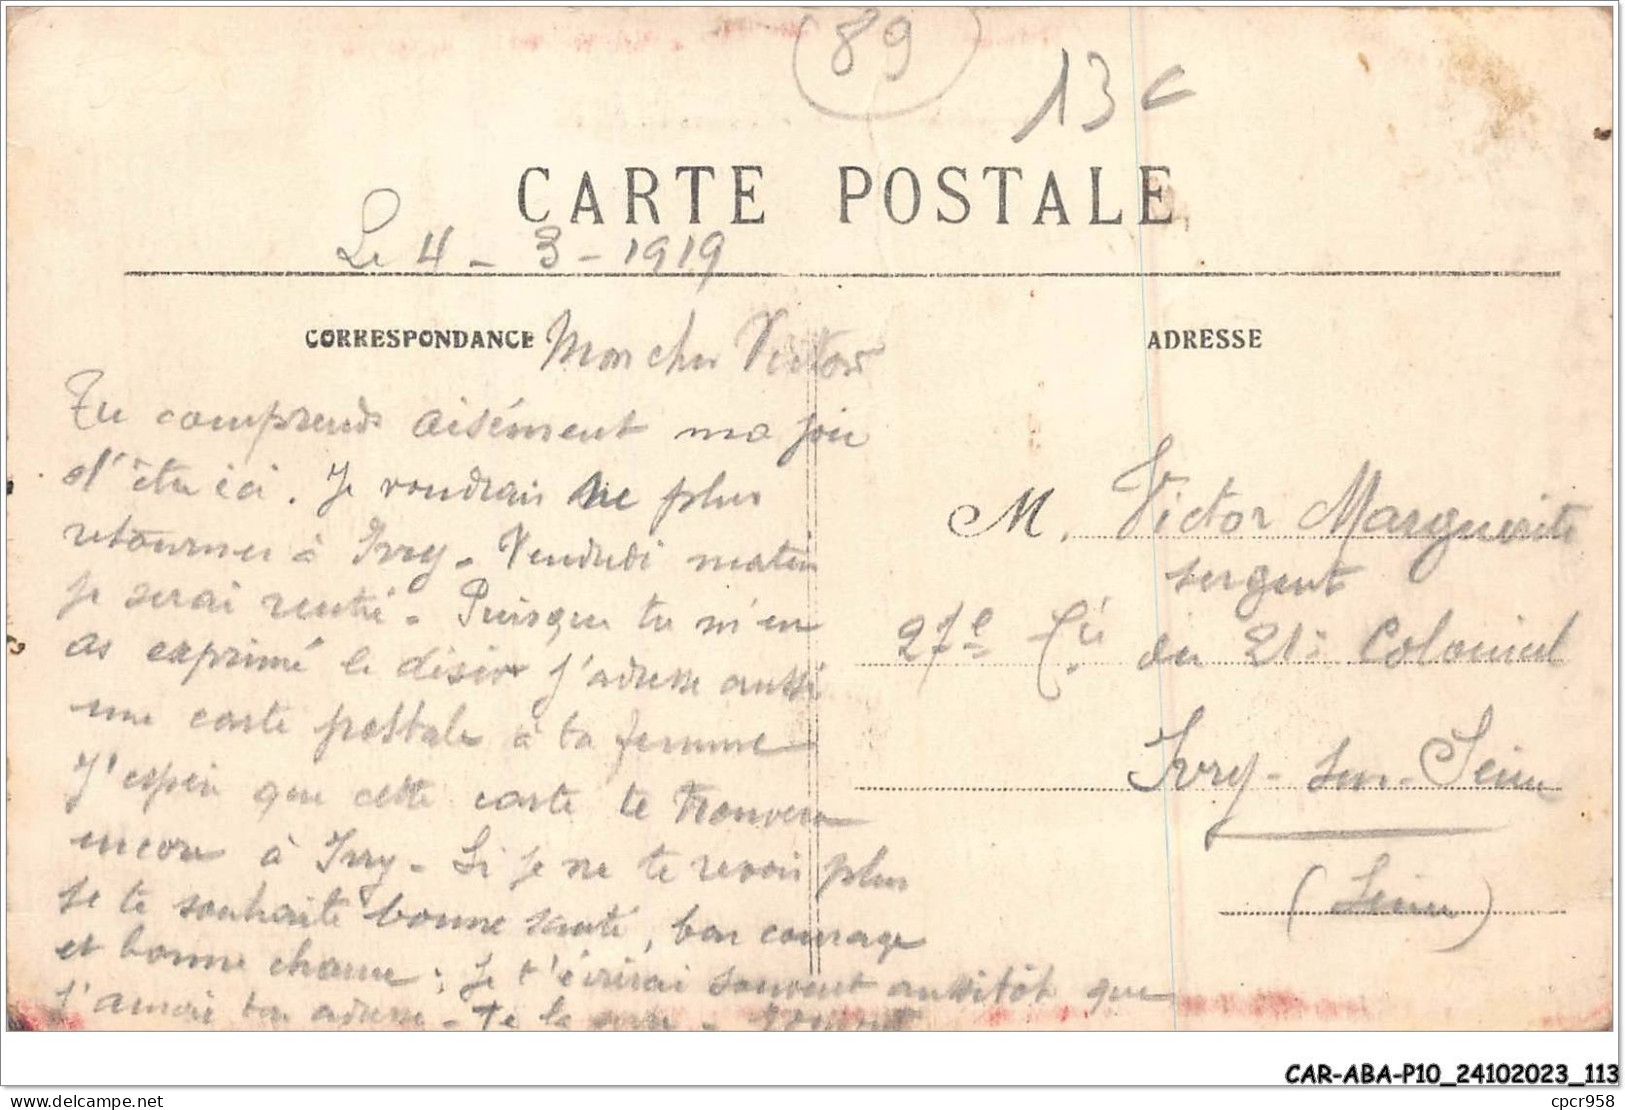 89
13 c
CARTE POSTALE
Le 4 - 3 - 1919
CORRESPONDANCE
Mon cher Victor
Tu comprends aisément ma joie
d'être ici. Je voudrais ne plus
retourner à Ivry - Vendredi matin
je serai rentré - Puisque tu m'en
as exprimé le désir j'adresse aussi
une carte postale à ta femme
J'espère que cette carte te trouvera
encore à Ivry - Si je ne te revois plus
Je te souhaite bonne santé, bon courage
et bonne chance : Je t'écrirai souvent aussitôt que
j'aurai ton adresse - Je te serre -
ADRESSE
M. Victor Marguerite
sergent
27e Cie du 21e Colonial
Ivry-sur-Seine
(Seine)
CAR-ABA-P10_24102023_113
www.delcampe.net
cpcr958